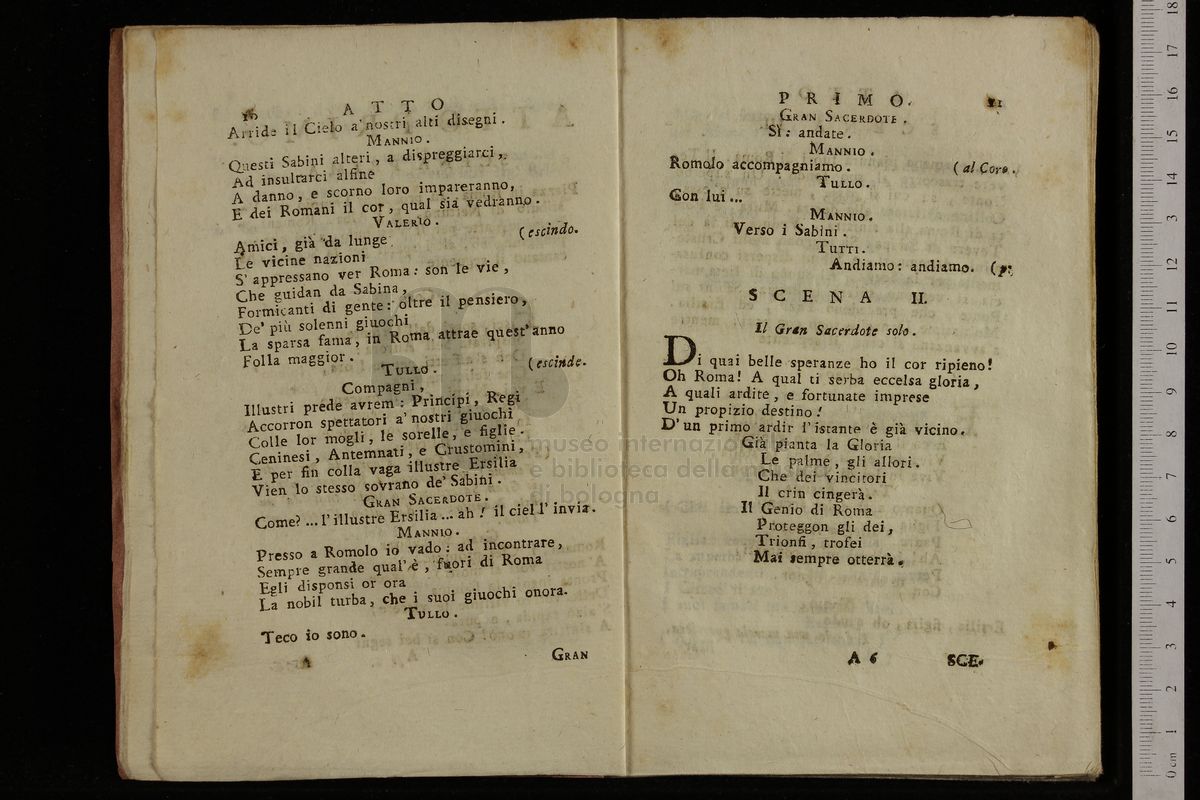 10 ATTO
Arride il Cielo a' nostri alti disegni.
MANNIO.
Questi Sabini alteri, a dispreggiarci,
Ad insultarci alfine
A danno, e scorno loro impareranno,
E dei Romani il cor, qual sia vedranno.
VALERIO.
Amici, già da lunge (escindo.
Le vicine nazioni
S' appressano ver Roma: son le vie,
Che guidan da Sabina,
Formicanti di gente: oltre il pensiero,
De' più solenni giuochi
La sparsa fama, in Roma attrae quest' anno
Folla maggior.
TULLO. (escinde.
Compagni,
Illustri prede avrem: Principi, Regi
Accorron spettatori a' nostri giuochi
Colle lor mogli, le sorelle, e figlie.
Ceninesi, Antemnati, e Crustomini,
E per fin colla vaga illustre Ersilia
Vien lo stesso sovrano de' Sabini.
GRAN SACERDOTE.
Come? ... l' illustre Ersilia ... ah! il ciel l' invia.
MANNIO.
Presso a Romolo io vado: ad incontrare,
Sempre grande qual' è, fuori di Roma
Egli disponsi or ora
La nobil turba, che i suoi giuochi onora.
TULLO.
Teco io sono.
GRAN
PRIMO. 11
GRAN SACERDOTE.
Sì: andate.
MANNIO.
Romolo accompagniamo. (al Coro.
TULLO.
Con lui ...
MANNIO.
Verso i Sabini.
TUTTI.
Andiamo: andiamo. (p:
SCENA II.
Il Gran Sacerdote solo.
Di quai belle speranze ho il cor ripieno!
Oh Roma! A qual ti serba eccelsa gloria,
A quali ardite, e fortunate imprese
Un propizio destino!
D' un primo ardir l' istante è già vicino.
Già pianta la Gloria
Le palme, gli allori.
Che dei vincitori
Il crin cingerà.
Il Genio di Roma
Proteggon gli dei,
Trionfi, trofei
Mai sempre otterrà.
A 6 SCE-
museo internazionale
e biblioteca della musica
di bologna
0 cm 1 2 3 4 5 6 7 8 9 10 11 12 13 14 15 16 17 18